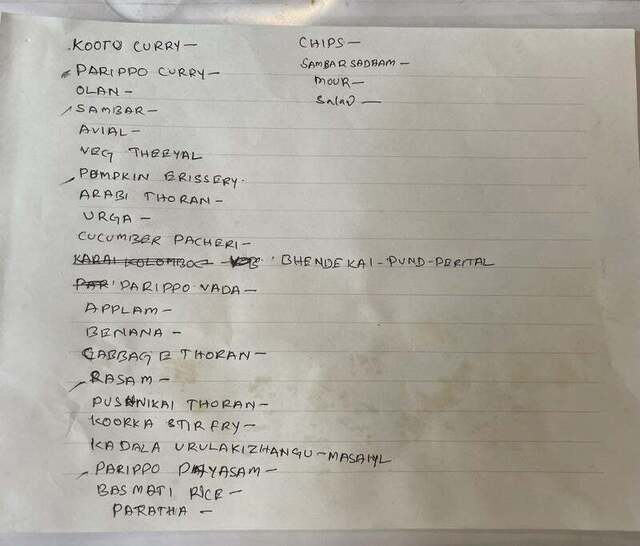 KOOTU CURRY –
PARIPPO CURRY –
OLAN –
SAMBAR –
AVIAL –
VEG THEEYAL
PUMPKIN ERISSERY.
ARABI THORAN –
URGA –
CUCUMBER PACHERI –
KARAI KOLOMBOC BHENDEKAI – PUND – PERITAL
PAR PARIPPO VADA –
APPLAM –
BENANA –
CABBAGE THORAN –
RASAM –
PUSANIKAI THORAN –
KOORKA STIR FRY –
KADALA URULAKIZHANGU – MASAIYL
PARIPPO PAYASAM –
BASMATI RICE –
PARATHA –
CHIPS –
SAMBAR SADHAM –
MOUR –
Salad –